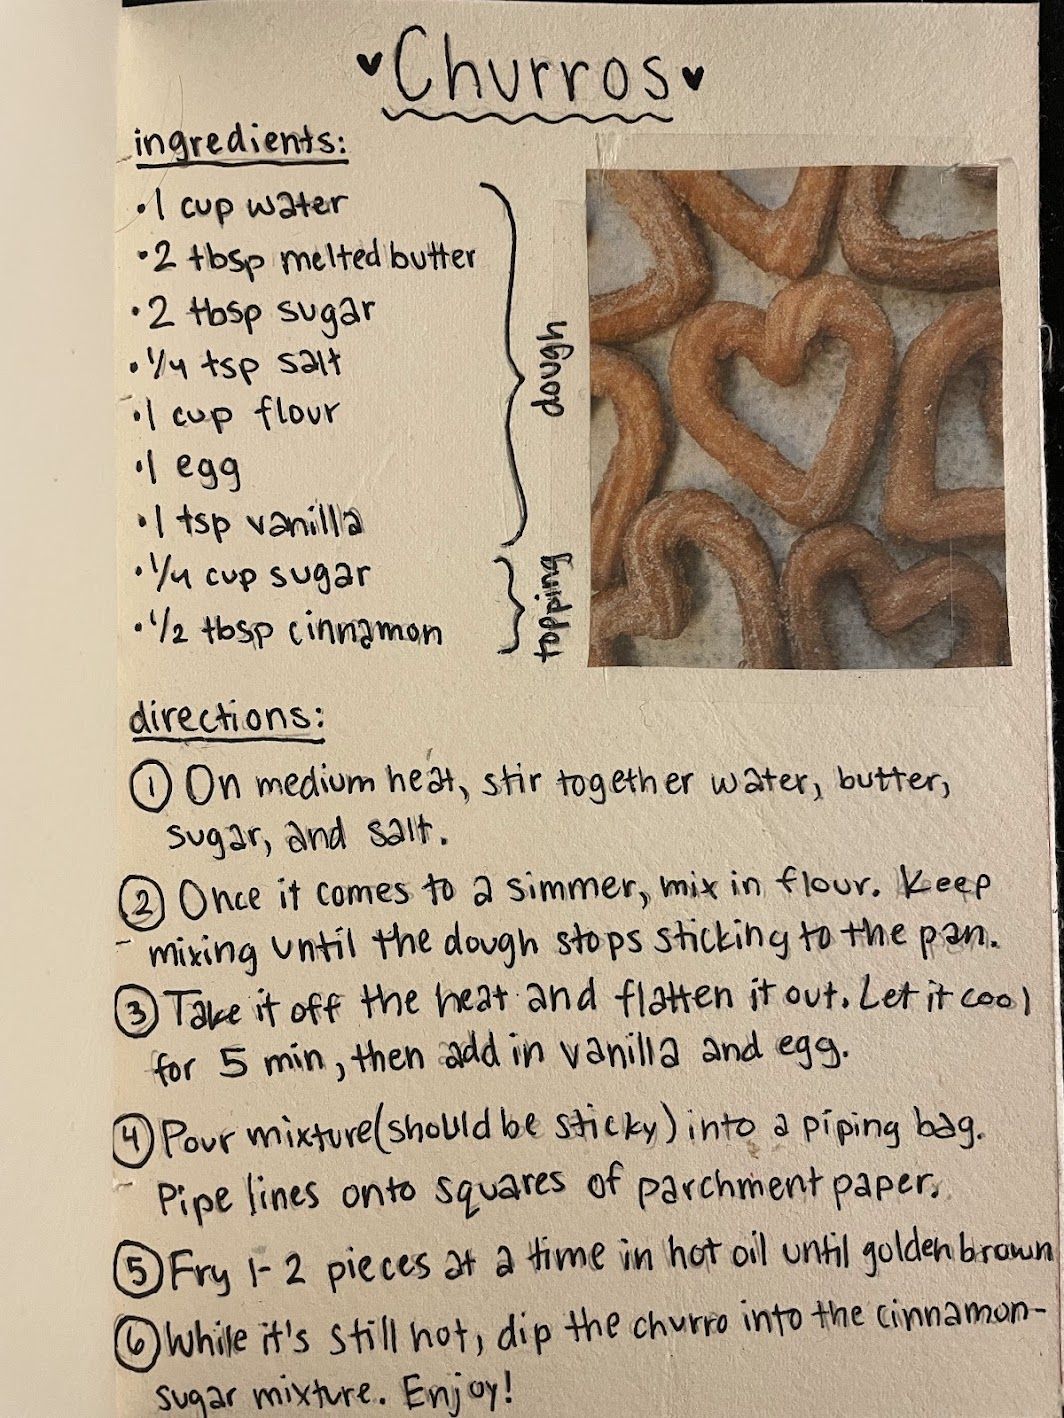 Churros
ingredients:
•1 cup water
•2 tbsp melted butter
•2 tbsp sugar
•1/4 tsp salt
•1 cup flour
•1 egg
•1 tsp vanilla
dough
•1/4 cup sugar
•1/2 tbsp cinnamon
topping
directions:
① On medium heat, stir together water, butter,
sugar, and salt.
② Once it comes to a simmer, mix in flour. Keep
mixing until the dough stops sticking to the pan.
③ Take it off the heat and flatten it out. Let it cool
for 5 min, then add in vanilla and egg.
④ Pour mixture (should be sticky) into a piping bag.
Pipe lines onto squares of parchment paper.
⑤ Fry 1-2 pieces at a time in hot oil until golden brown
⑥ While it's still hot, dip the churro into the cinnamon-
sugar mixture. Enjoy!